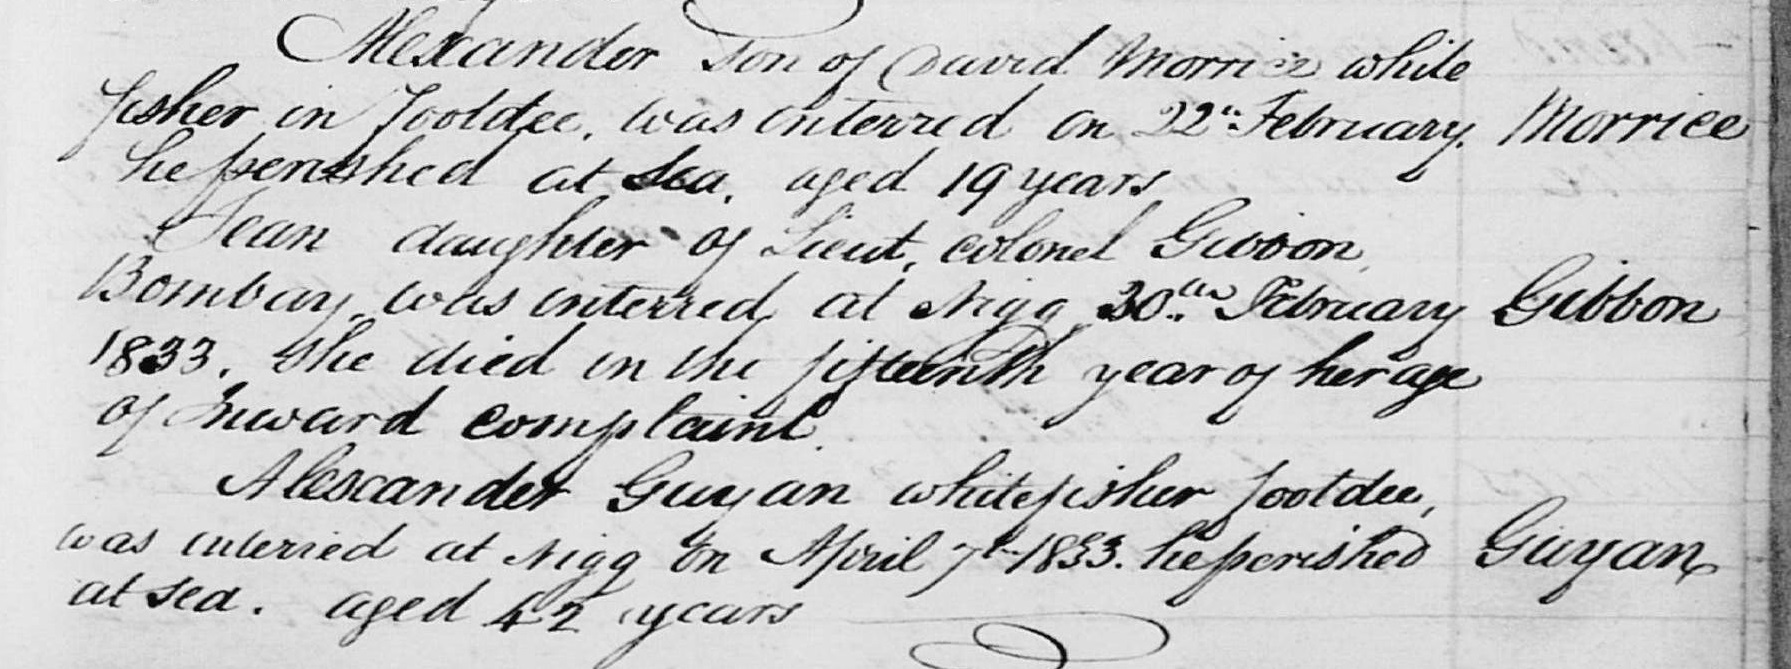 Alexander son of David Morrice white
fisher in footdee, was interred on 22d February. Morrice
he perished at Sea, aged 19 years
Jean daughter of Lieut, colonel Gibbon,
Bombay, was interred at Nigg 20th February Gibbon
1833, She died in the fifteenth year of her age
of Inward complaint.
Alexander Guyan whitefisher footdee,
was interied at Nigg on April 7th 1833. he perished Guyan
at sea. aged 42 years